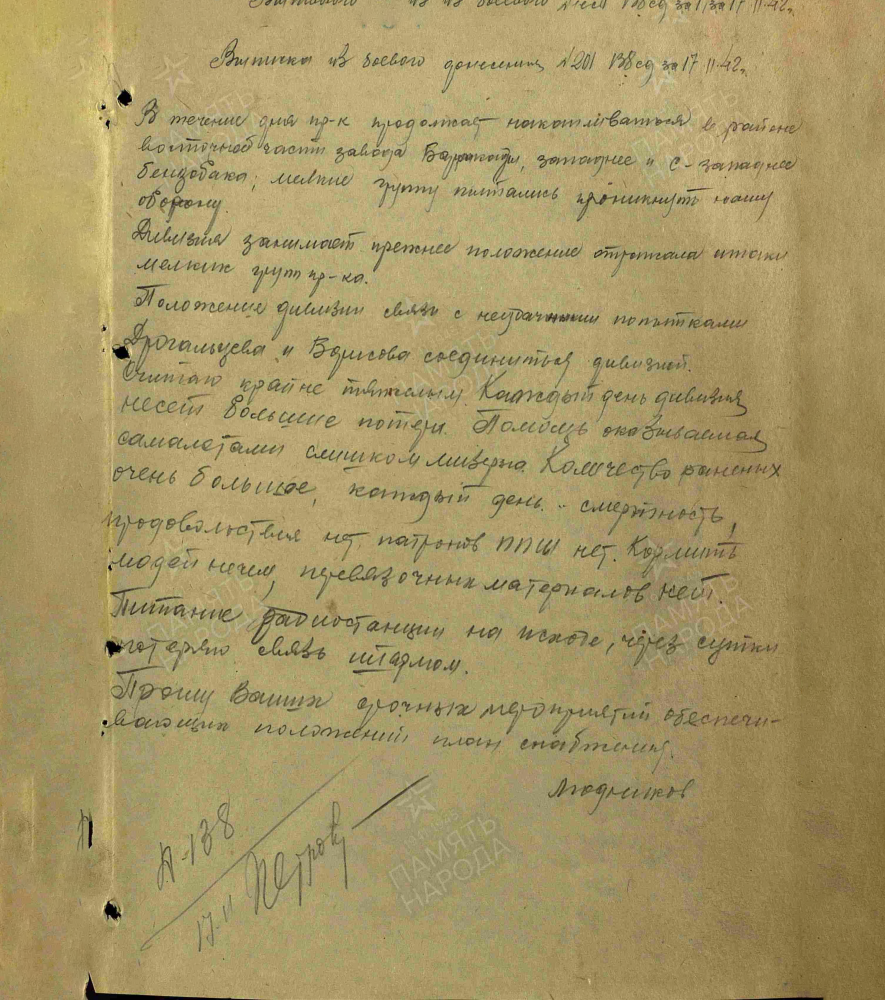 Выписка из боевого донесения №201 138 сд за 17.11.42г.
В течение дня пр-к продолжает накапливаться в районе
восточной части завода Баррикады, западнее и с-западнее
бензобака; мелкие группы пытались проникнуть нашу
оборону.
Дивизия занимает прежнее положение отражала атаки
мелких груп пр-ка.
Положение дивизии связи с неудачными попытками
Дрогальцева и Борисова соединиться дивизией.
Считаю крайне тяжелым. Каждый день дивизия
несет большие потери. Помощь оказываемая
самалетами слишком мизерна. Количество раненых
очень большое, каждый день - смертность,
продовольствия нет, патронов ППШ нет. Кормить
людей нечем, перевязочных материалов нет.
Питание радиостанции на исходе, через сутки
потеряю связь штармом.
Прошу Ваших срочных мероприятий обеспечи-
вающих положений план снабжения.
Людников
А-138
17.11 Петров
ПАМЯТЬ
НАРОДА